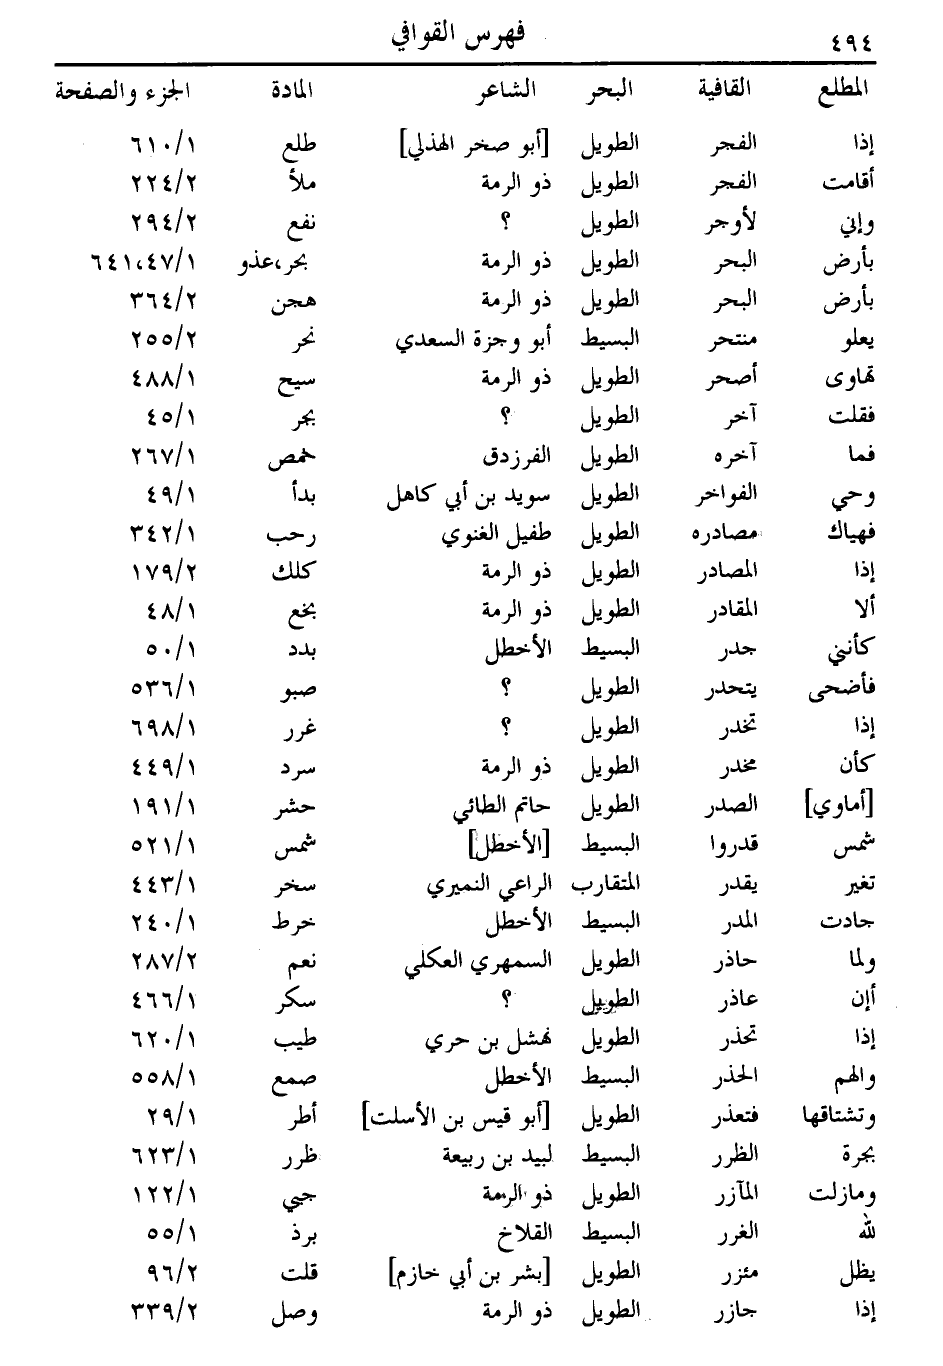 ٤٩٤ فهرس القوافي
المطلع القافية البحر الشاعر المادة الجزء والصفحة
إذا الفجر الطويل [أبو صخر الهذلي] طلع ٦١٠/١
أقامت الفجر الطويل ذو الرمة ملأ ٢٢٤/٢
وإني لأوجر الطويل ؟ نفع ٢٩٤/٢
بأرض البحر الطويل ذو الرمة بحر،عذو ٦٤١،٤٧/١
بأرض البحر الطويل ذو الرمة هجن ٣٦٤/٢
يعلو منتحر البسيط أبو وجزة السعدي نحر ٢٥٥/٢
تهاوى أصحر الطويل ذو الرمة سيح ٤٨٨/١
فقلت آخر الطويل ؟ بجر ٤٥/١
فما آخره الطويل الفرزدق خمص ٢٦٧/١
وحي الفواخر الطويل سويد بن أبي كاهل بدأ ٤٩/١
فهياك مصادره الطويل طفيل الغنوي رحب ٣٤٢/١
إذا المصادر الطويل ذو الرمة كلك ١٧٩/٢
ألا المقادر الطويل ذو الرمة بخع ٤٨/١
كأنني جدر البسيط الأخطل بدد ٥٠/١
فأضحى يتحدر الطويل ؟ صبو ٥٣٦/١
إذا تخدر الطويل ؟ غرر ٦٩٨/١
كأن مخدر الطويل ذو الرمة سرد ٤٤٩/١
[أماوي] الصدر الطويل حاتم الطائي حشر ١٩١/١
شمس قدروا البسيط [الأخطل] شمس ٥٢١/١
تغير يقدر المتقارب الراعي النميري سخر ٤٤٣/١
جادت المدر البسيط الأخطل خرط ٢٤٠/١
ولما حاذر الطويل السمهري العكلي نعم ٢٨٧/٢
أإن عاذر الطويل ؟ سكر ٤٦٦/١
إذا تحذر الطويل نهشل بن حري طيب ٦٢٠/١
والهم الحذر البسيط الأخطل صمع ٥٥٨/١
وتشتاقها فتعذر الطويل [أبو قيس بن الأسلت] أطر ٢٩/١
بجرة الظرر البسيط لبيد بن ربيعة ظرر ٦٢٣/١
ومازلت المآزر الطويل ذو الرمة جبي ١٢٢/١
لله الغرر البسيط القلاخ برذ ٥٥/١
يظل مئزر الطويل [بشر بن أبي خازم] قلت ٩٦/٢
إذا جازر الطويل ذو الرمة وصل ٣٣٩/٢